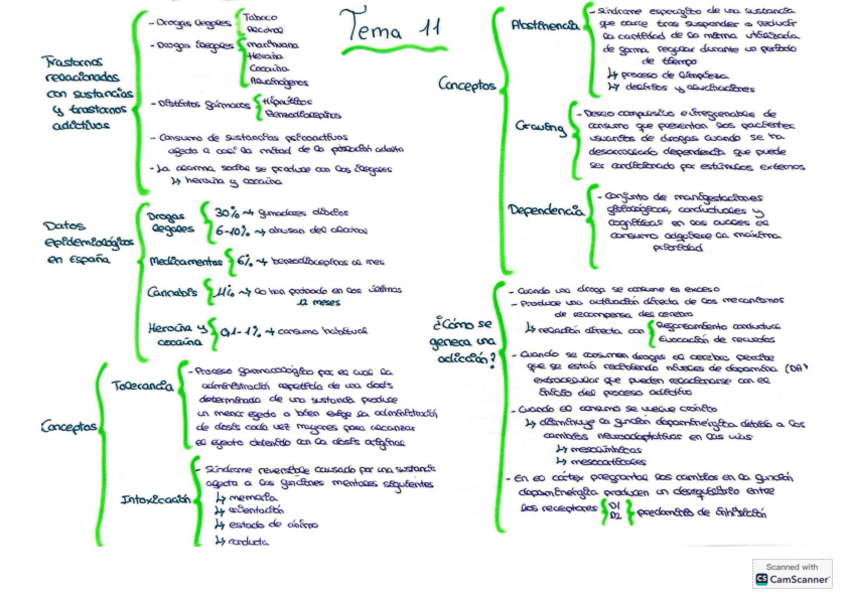 Tema 11
Trastornos
relacionados
con sustancias
y trastornos
adictivos
- Drogas legales
Tabaco
Alcohol
- Drogas ilegales
marihuana
Heroína
Cocaína
Alucinógenos
- Distintos fármacos
Hipnóticos
Benzodiacepinas
- Consumo de sustancias psicoactivas
afecta a casi la mitad de la población adulta
- La alarma social se produce con las ilegales
↳ heroína y cocaína
Datos
epidemiológicos
en España
Drogas
legales
30% → fumadores diarios
6-10% → abusan del alcohol
Medicamentos
6% → benzodiacepinas al mes
Cannabis
11% → lo han probado en los últimos
12 meses
Heroína y
cocaína
0,1-1% → consumo habitual
Conceptos
Tolerancia
- Proceso farmacológico por el cual la
administración repetida de una dosis
determinada de una sustancia produce
un menor efecto o bien exige la administración
de dosis cada vez mayores para alcanzar
el efecto obtenido con la dosis original
Intoxicación
- Síndrome reversible causado por una sustancia
afecta a las funciones mentales siguientes
↳ memoria
↳ orientación
↳ estado de ánimo
↳ conducta
Conceptos
Abstinencia
- Síndrome específico de una sustancia
que ocurre tras suspender o reducir
la cantidad de la misma utilizada
de forma regular durante un período
de tiempo
↳ proceso de limpieza
↳ delirios y alucinaciones
Craving
- Deseo compulsivo e irrefrenable de
consumo que presentan los pacientes
usuarios de drogas cuando se ha
desarrollado dependencia que puede
ser condicionado por estímulos externos
Dependencia
- Conjunto de manifestaciones
fisiológicas, conductuales y
cognitivas en las cuales el
consumo adquiere la máxima
prioridad
¿Cómo se
genera una
adicción?
- Cuando una droga se consume en exceso
- Produce una activación directa de los mecanismos
de recompensa del cerebro
↳ relación directa con
Reforzamiento conductual
Evocación de recuerdos
- Cuando se consumen drogas el cerebro percibe
que se están recibiendo niveles de dopamina (DA)
extracelular que pueden relacionarse con el
inicio del proceso adictivo
- Cuando el consumo se vuelve crónico
↳ disminuye la función dopaminérgica debido a los
cambios neuroadaptativos en las vías
↳ mesolímbicas
↳ mesocorticales
- En el córtex prefrontal los cambios en la función
dopaminérgica producen un desequilibrio entre
los receptores
D1
D2
predominio de inhibición
Scanned with
CS CamScanner